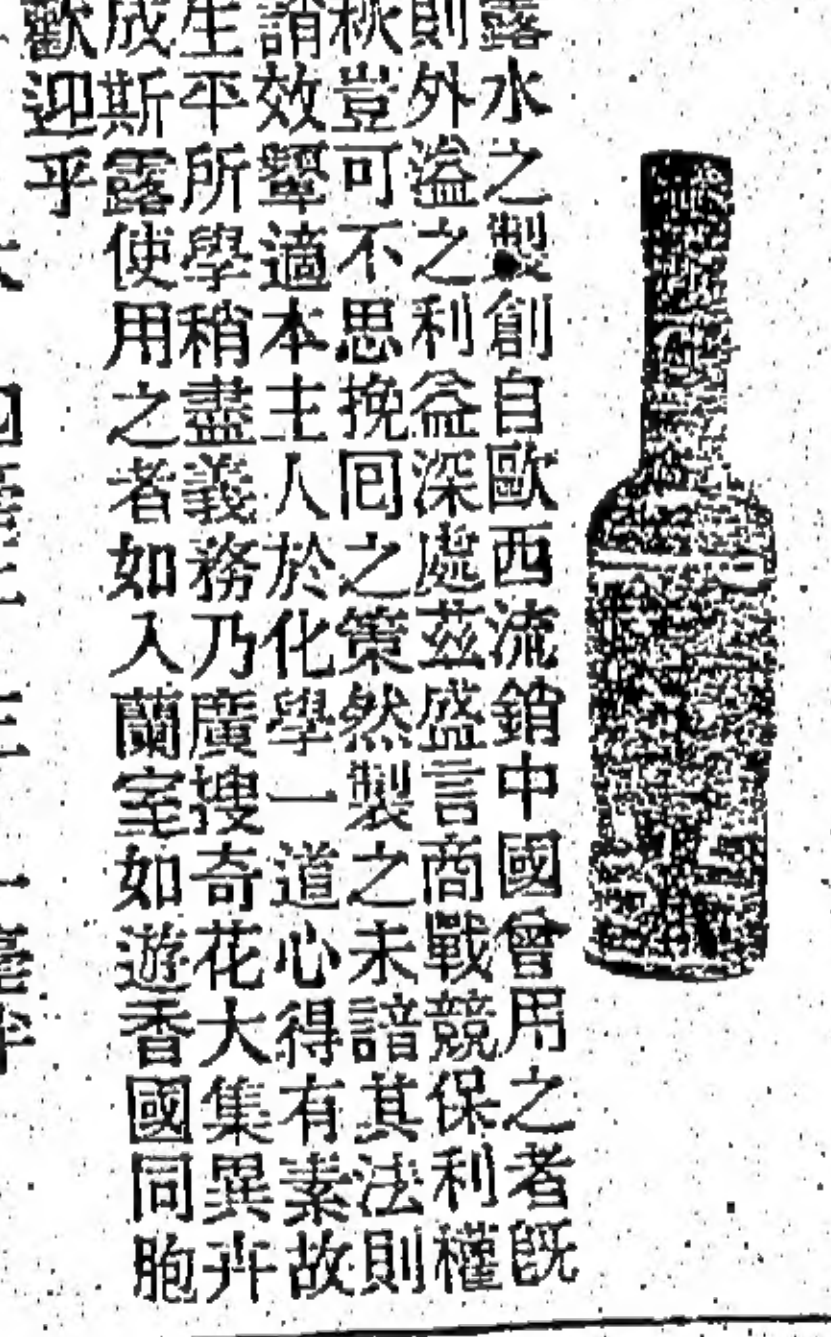 露水之製創自歐西流銷中國曾用之者既
則外溢之利益深處茲盛言商戰競保利權
秋豈可不思挽囘之策然製之未諳其法則
誚效顰適本主人於化學一道心得有素故
生平所學稍盡義務乃廣搜奇花大集異卉
成斯露使用之者如入蘭室如遊香國同胞
歡迎乎